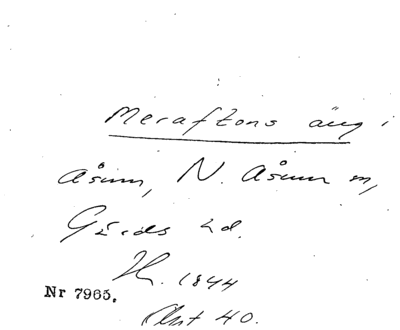 Meraftons äng i
Åsum, N. Åsum sn,
Gärds hd.
H. 1844
Nr 7965.
Akt 40.